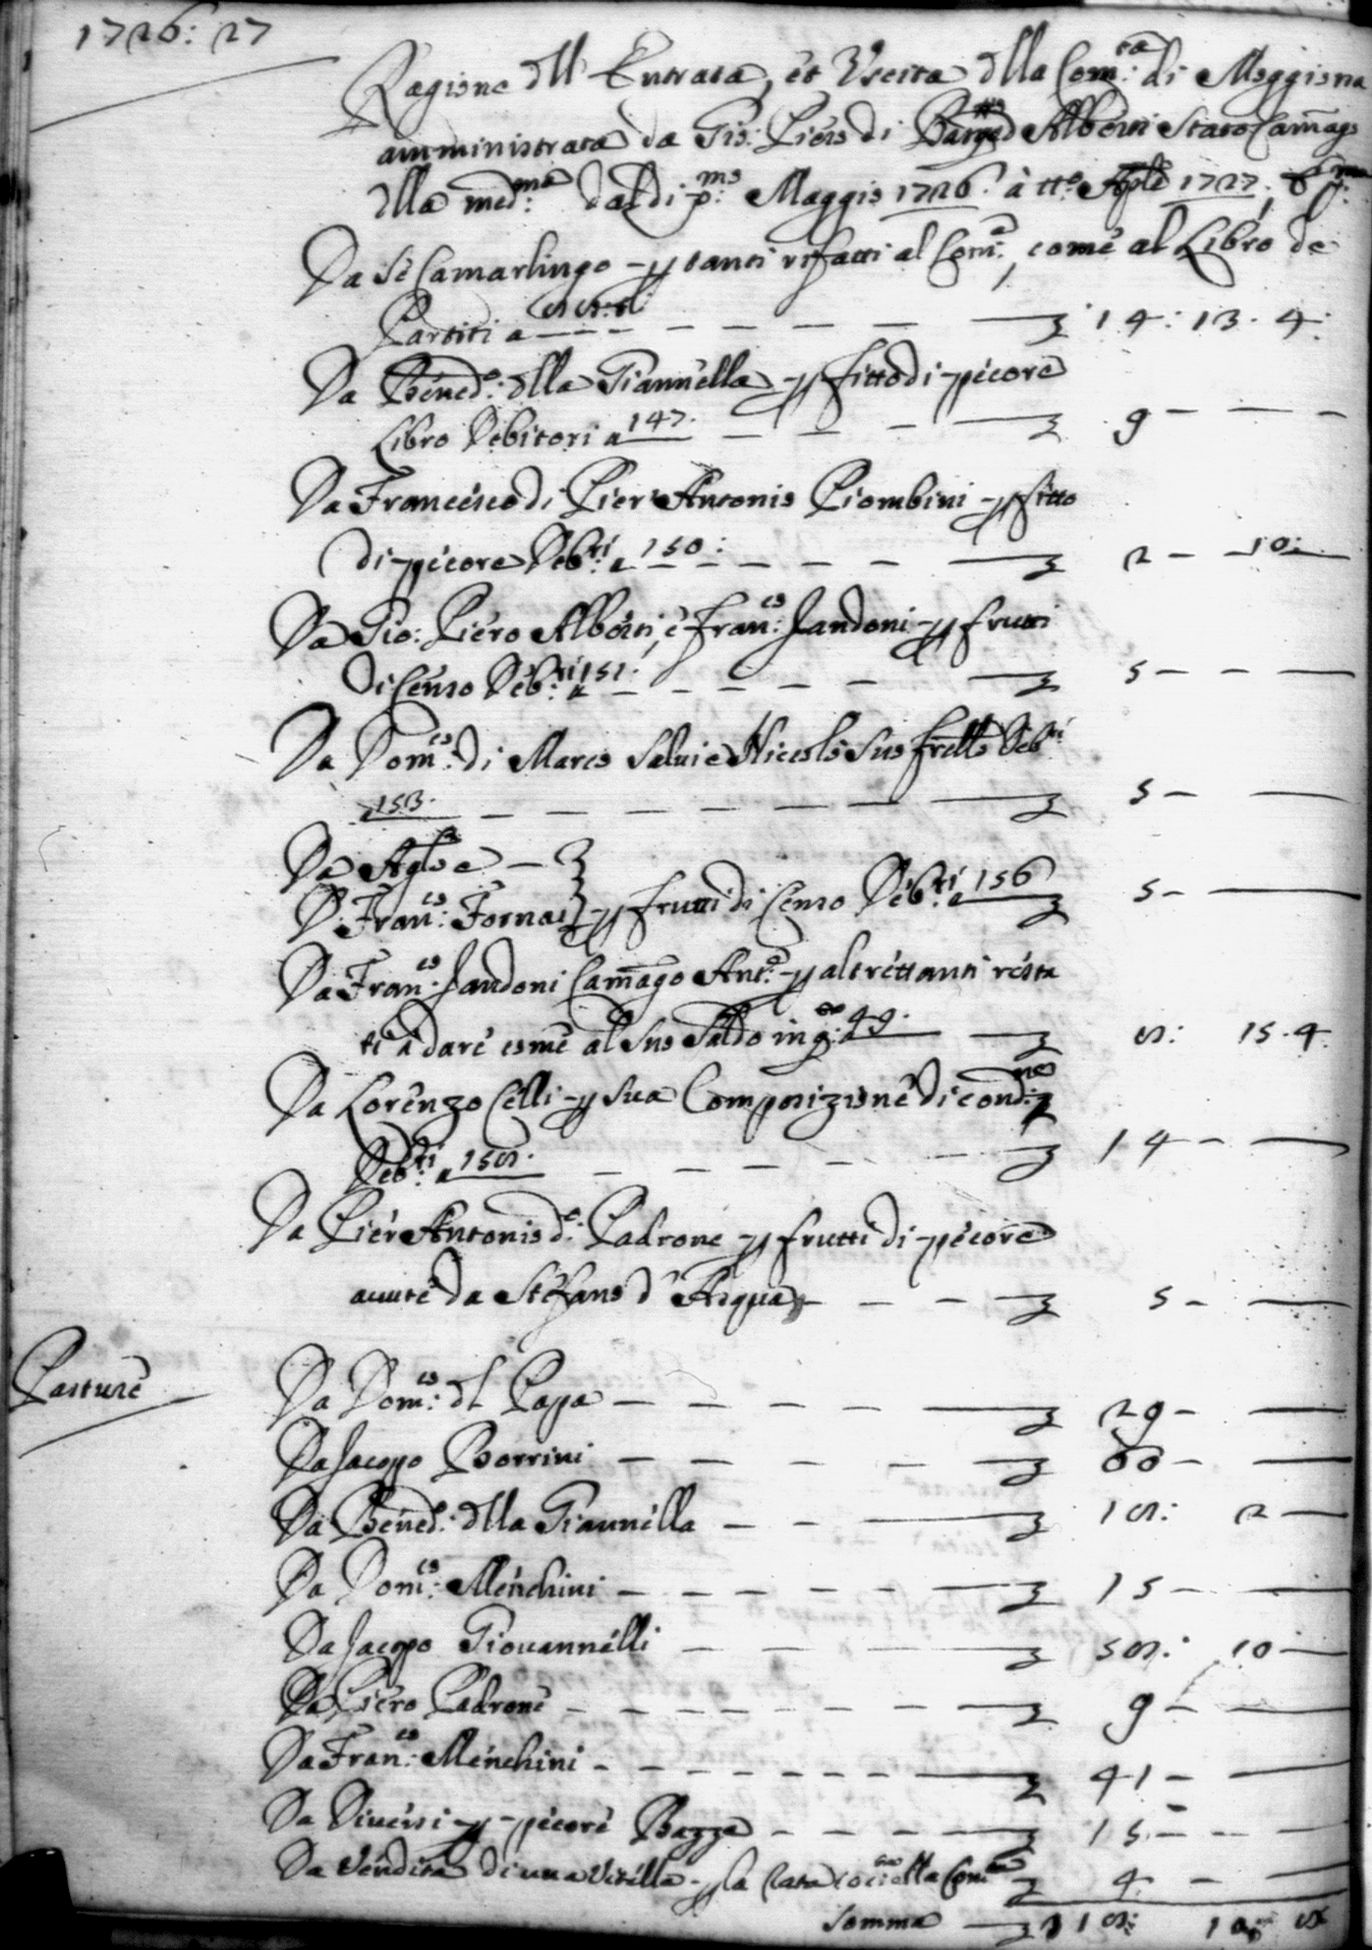 1726: 27
Ragione dll' Entrata, et Uscita dlla Com:tà di Moggiona
amministrata da Gio: Piero di Alberti Stato Camago
dlla med:ma dal di p:mo Maggio 1726. à tt:o Aple 1727,
Da Sè Camarlingo p tanti rifatti al Com:e, come al Libro de
Partiti a 14: 13. 4:
Da Bened:o dlla Giannella p fitto di pecore
Libro Debitori a 147. 9
Da Francesco di Pier Antonio Piombini p fitto
di pecore Deb:ri a 150: 2 10:
Da Gio: Piero Alberti, è Fran:co Jandoni p frutti
di Censo Deb:ri a 151. 5
Da Dom:co di Marco Salvi e Niccolò Suo frello Deb:ri
a 153. 5
Da
D. Fran:co Fornai p frutti di Censo Deb:ri a 156 5
Da Fran:co Jandoni Camago Ant:e p altrettanti resta
ti à dare come al Suo Saldo in q:o a 49. 8: 15. 4.
Da Lorenzo Celli p sua Composizione di cond:ne
Deb:ri a 158. 14
Da Pier Antonio d:o Padrone p frutti di pecore
avute da Stefano d' 5
Pasture
Da Dom:co dl Papa 29
Da Jacopo Borrini 60
Da Bened:o dlla Giannella 18: 2
Da Dom:co Menchini 15
Da Jacopo Giovannelli 58: 10
Da Piero Padrone 9
Da Fran:co Menchini 41
Da Diversi p pecore Bazze 15
Da Vendita di una Vitella p la dlla Com:tà 4
Somma